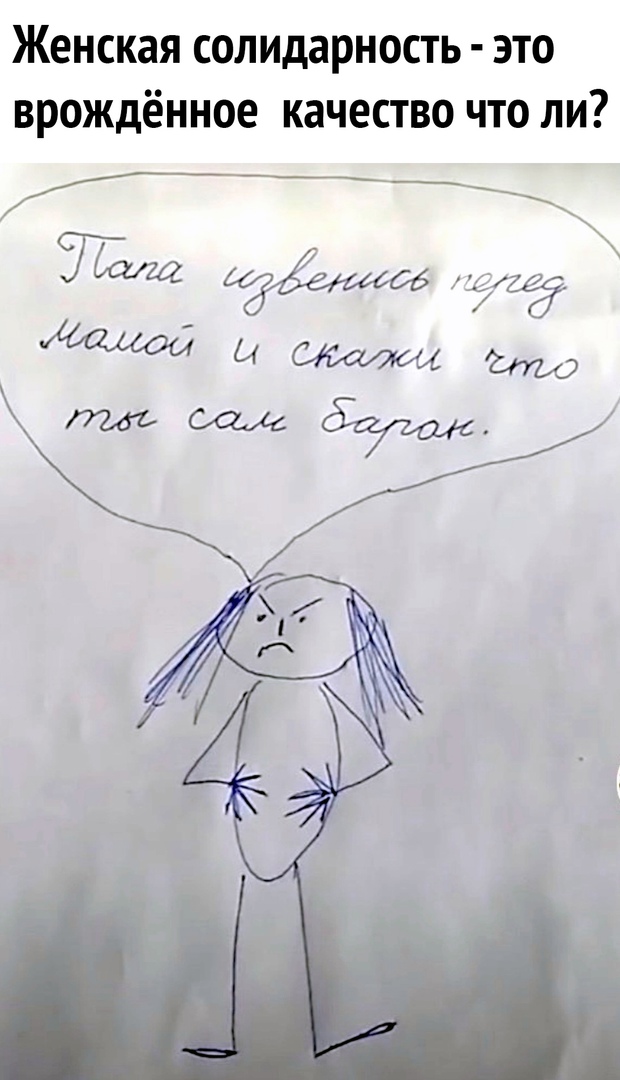 Женская солидарность - это
врождённое качество что ли?
Папа извенись перед
мамой и скажи что
ты сам баран.